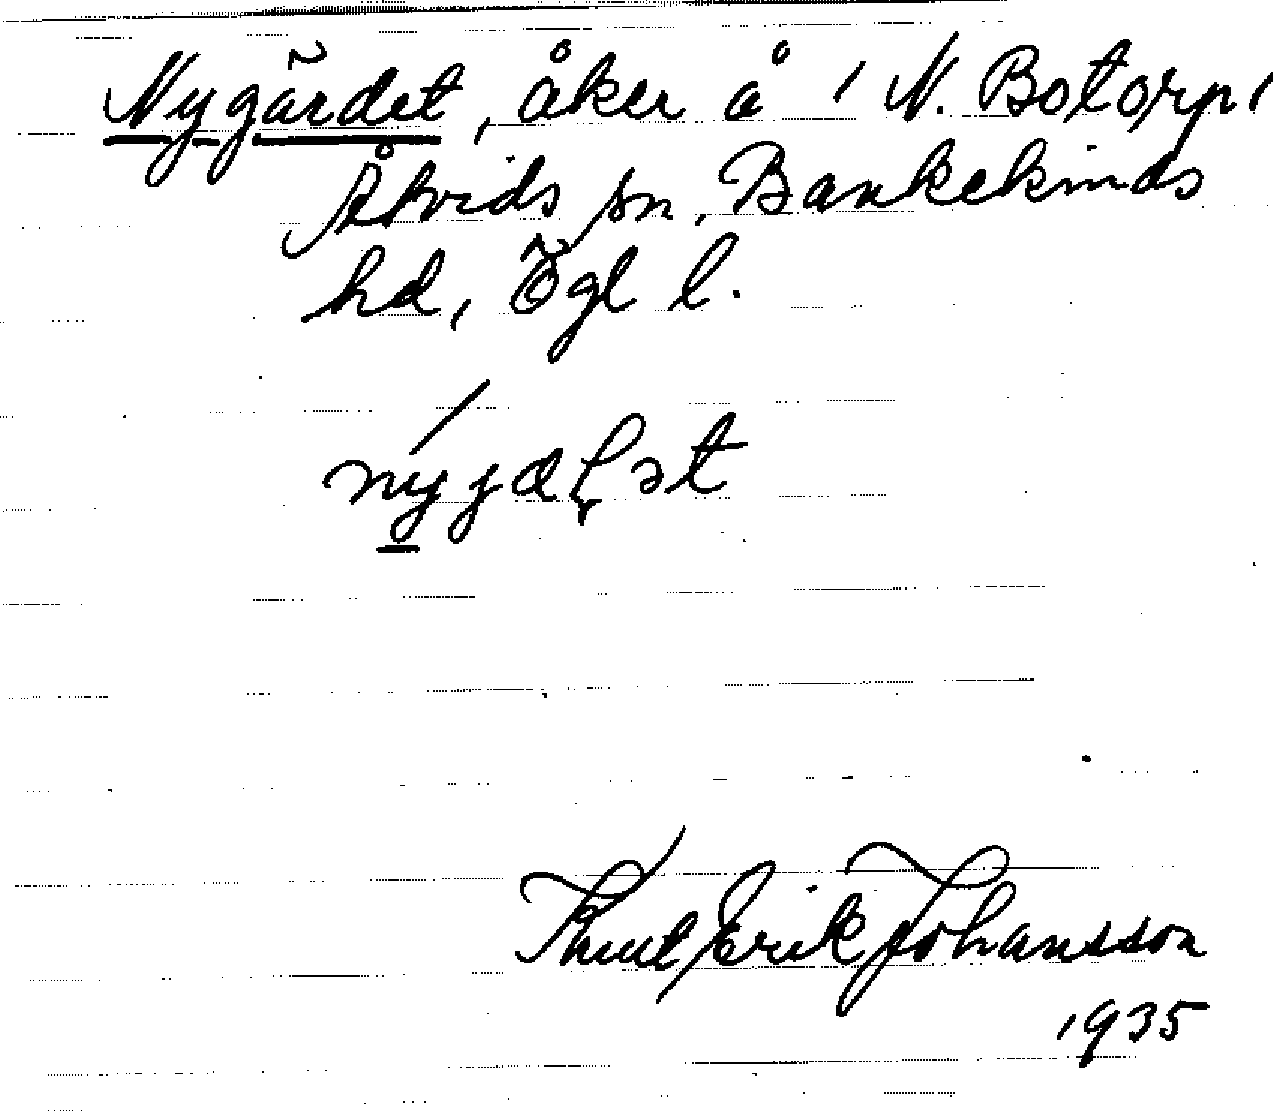 Nygärdet, åker å 1 N. Botorp,
Åtvids sn, Bankekinds
hd, Ögl l.
nýjæɽət
Knut Erik Johansson
1935